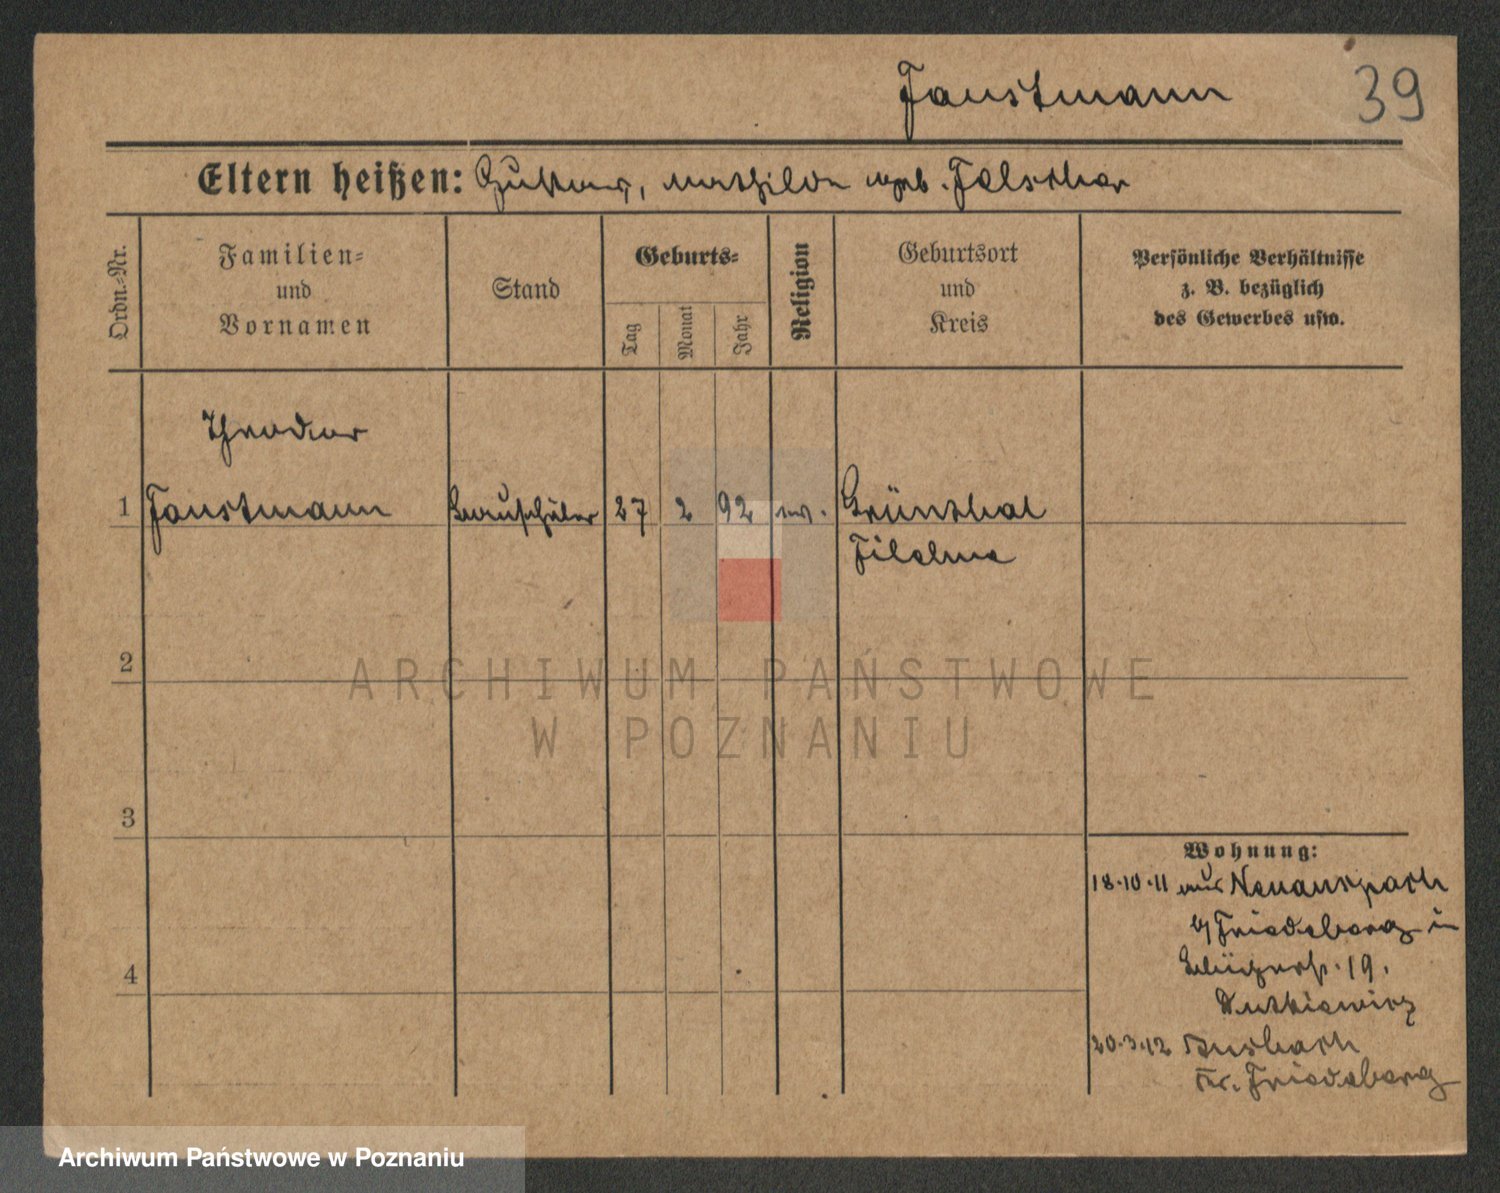 Faustmann
39
Eltern heißen: Gustav, Mathilde geb. Fälscher
Ordn.-Nr.
Familien-
und
Vornamen
Stand
Geburts-
Tag
Monat
Jahr
Religion
Geburtsort
und
Kreis
Persönliche Verhältnisse
z. B. bezüglich
des Gewerbes usw.
Theodor
1 Faustmann Bauschüler 27 2 92 ev. Grünthal
Filehne
2
3
4
ARCHIWUM PAŃSTWOWE
W POZNANIU
Wohnung:
18.10.11 aus Neuanspach
b/ Friedeberg in
19.
Dutkiewicz
20.3.12 Ansbach
Kr. Friedeberg
Archiwum Państwowe w Poznaniu